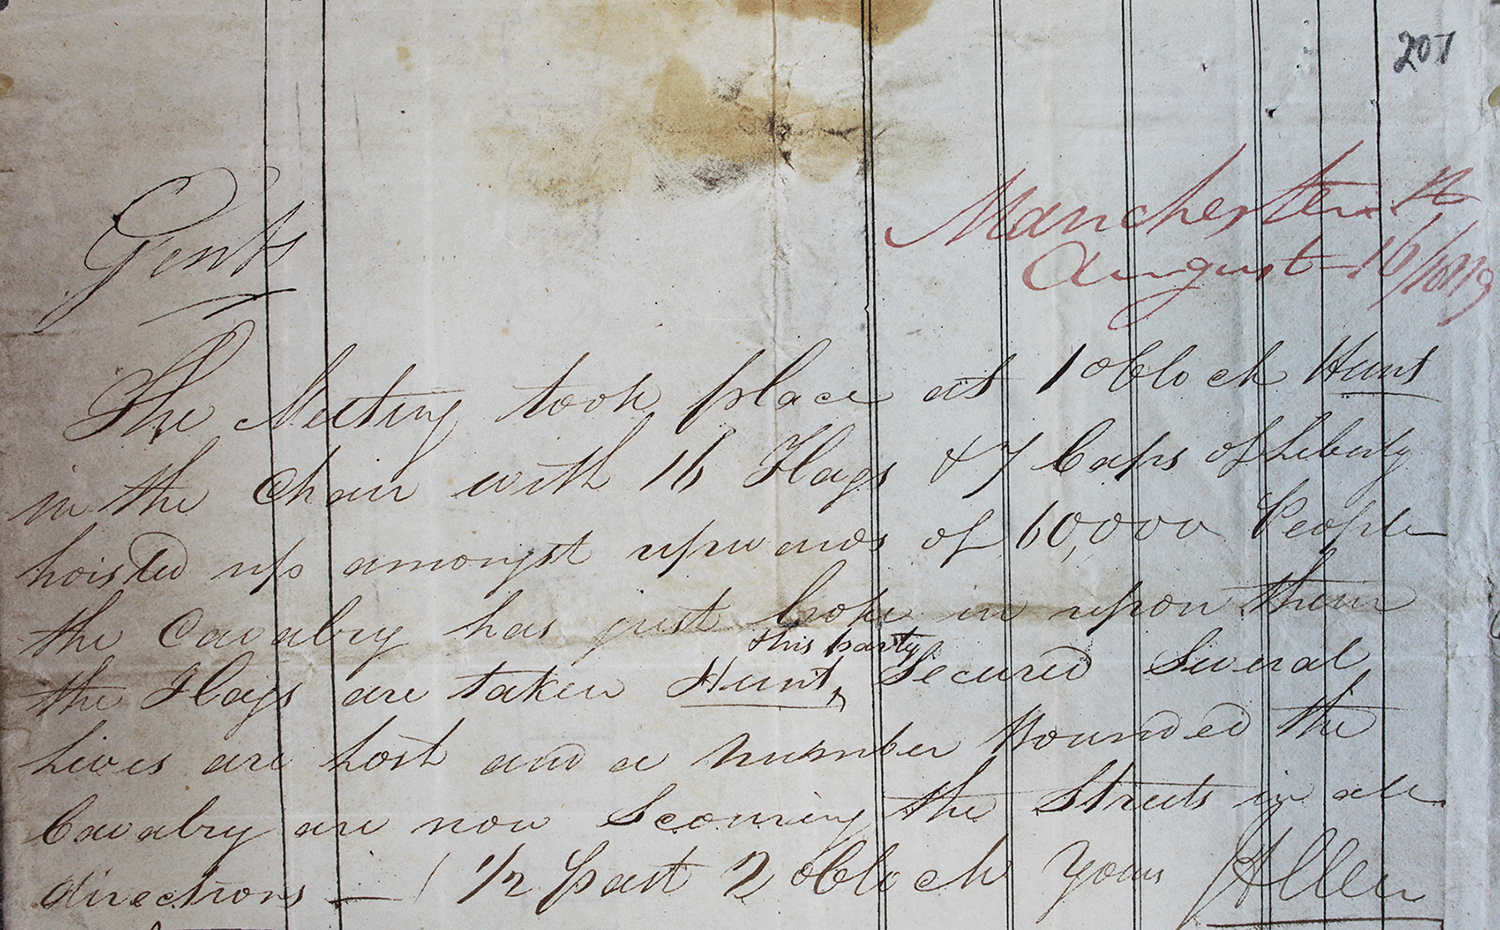 207
Manchester
August 16/1819
Gents
The Meeting took place at 1 oClock Hunt
in the Chair with 16 Flags & 7 Caps of Liberty
hoisted up amongst upwards of 60,000 People
the Cavalry has just broke in upon them
the Flags are taken Hunt, this party Secured Several
Lives are Lost and a number Wounded the
Cavalry are now Scouring the Streets in all
directions — 1/2 past 2 oClock Yours JAllen